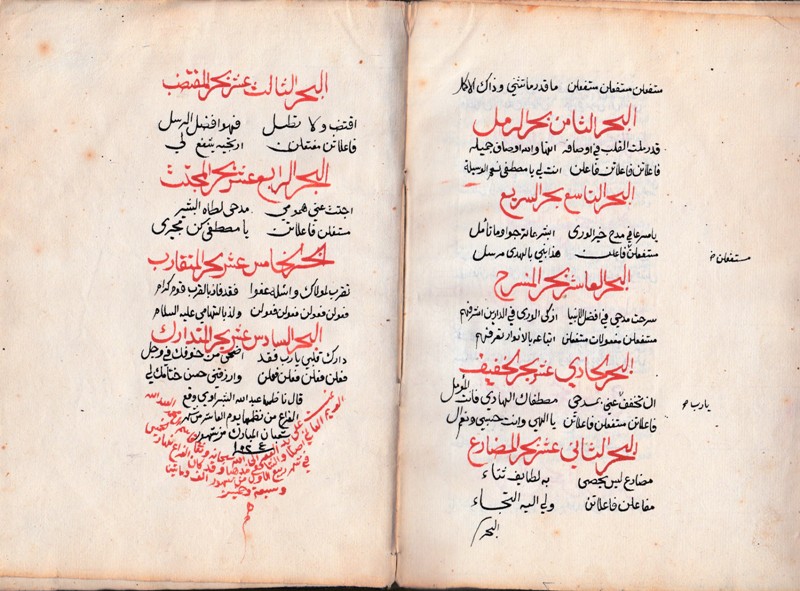 مستفعلن ستفعلن ستفعلن ما قدر ما تثني وذاك الاكمل
البحر الثامن بحر الرمل
قد رملت القلب في اوصافه انها والله اوصاف جميله
فاعلاتن فاعلاتن فاعلن انت لي يا مصطفى نعم الوسيلة
البحر التاسع بحر السريع
يا مسرعا في مدح خير الورى ابشر بما ترجوا وما تأمل
مستفعلن فاعلن هذا نبي بالهدى مرسل
مستفعلن صح
البحر العاشر بحر المنسرح
سرحت مدحي في افضل الانبيا ازكى الورى في الدارين اشرفهم
مستفعلن مفعولات مستفعلن
البحر الحادي عشر بحر الخفيف
ان تخفف عني بمدحي مصطفاك الهادي فانت المؤمل
يا رب صح
فاعلاتن ستفعلن فاعلاتن يا الهي وانت حسبي ونعم ال
البحر الثاني عشر بحر المضارع
مضارع ليس يحصى به لطايف ثناء
مفاعلن فاعلاتن ولي اليه التجاء
البحر
البحر الثالث عشر بحر المقتضب
اقتضب ولا تطل فهو افضل الرسل
فاعلاتن مفتعلن ارتجيه يشفع لي
البحر الرابع عشر بحر المجتث
اجتث عني همومي مدحي لطاه البشير
مستفعلن فاعلاتن يا مصطفى كن مجيري
البحر الخامس عشر بحر المتقارب
تقرب لمولاك واسئله عفوا فقد فاز بالقرب قوم كرام
فعولن فعولن فعولن فعولن ولذ بالتهامي عليه السلام
البحر السادس عشر بحر المتدارك
دارك قلبي يا رب فقد اضحى من خوفك في وجل
فعلن فعلن فعلن فعلن وارزقني حسن ختامك لي
قال ناظمها عبد الله الشبراوي وقع
الفراغ من نظمها يوم العاشر من شهر
شعبان المبارك من شهور
في شهر ربيع الاول من شهور الف ومايتين
وسبعة وعشرين